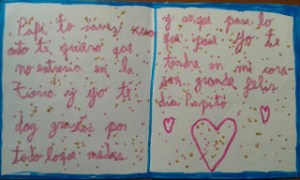 Papi tu saves cuan
oto te quiero que
no entraria en la
tierra ay yo te
doy gracias por
todo loque medas
y anque pase lo
que pase yo te
tendre en mi cora
son grande felis
dia Papito